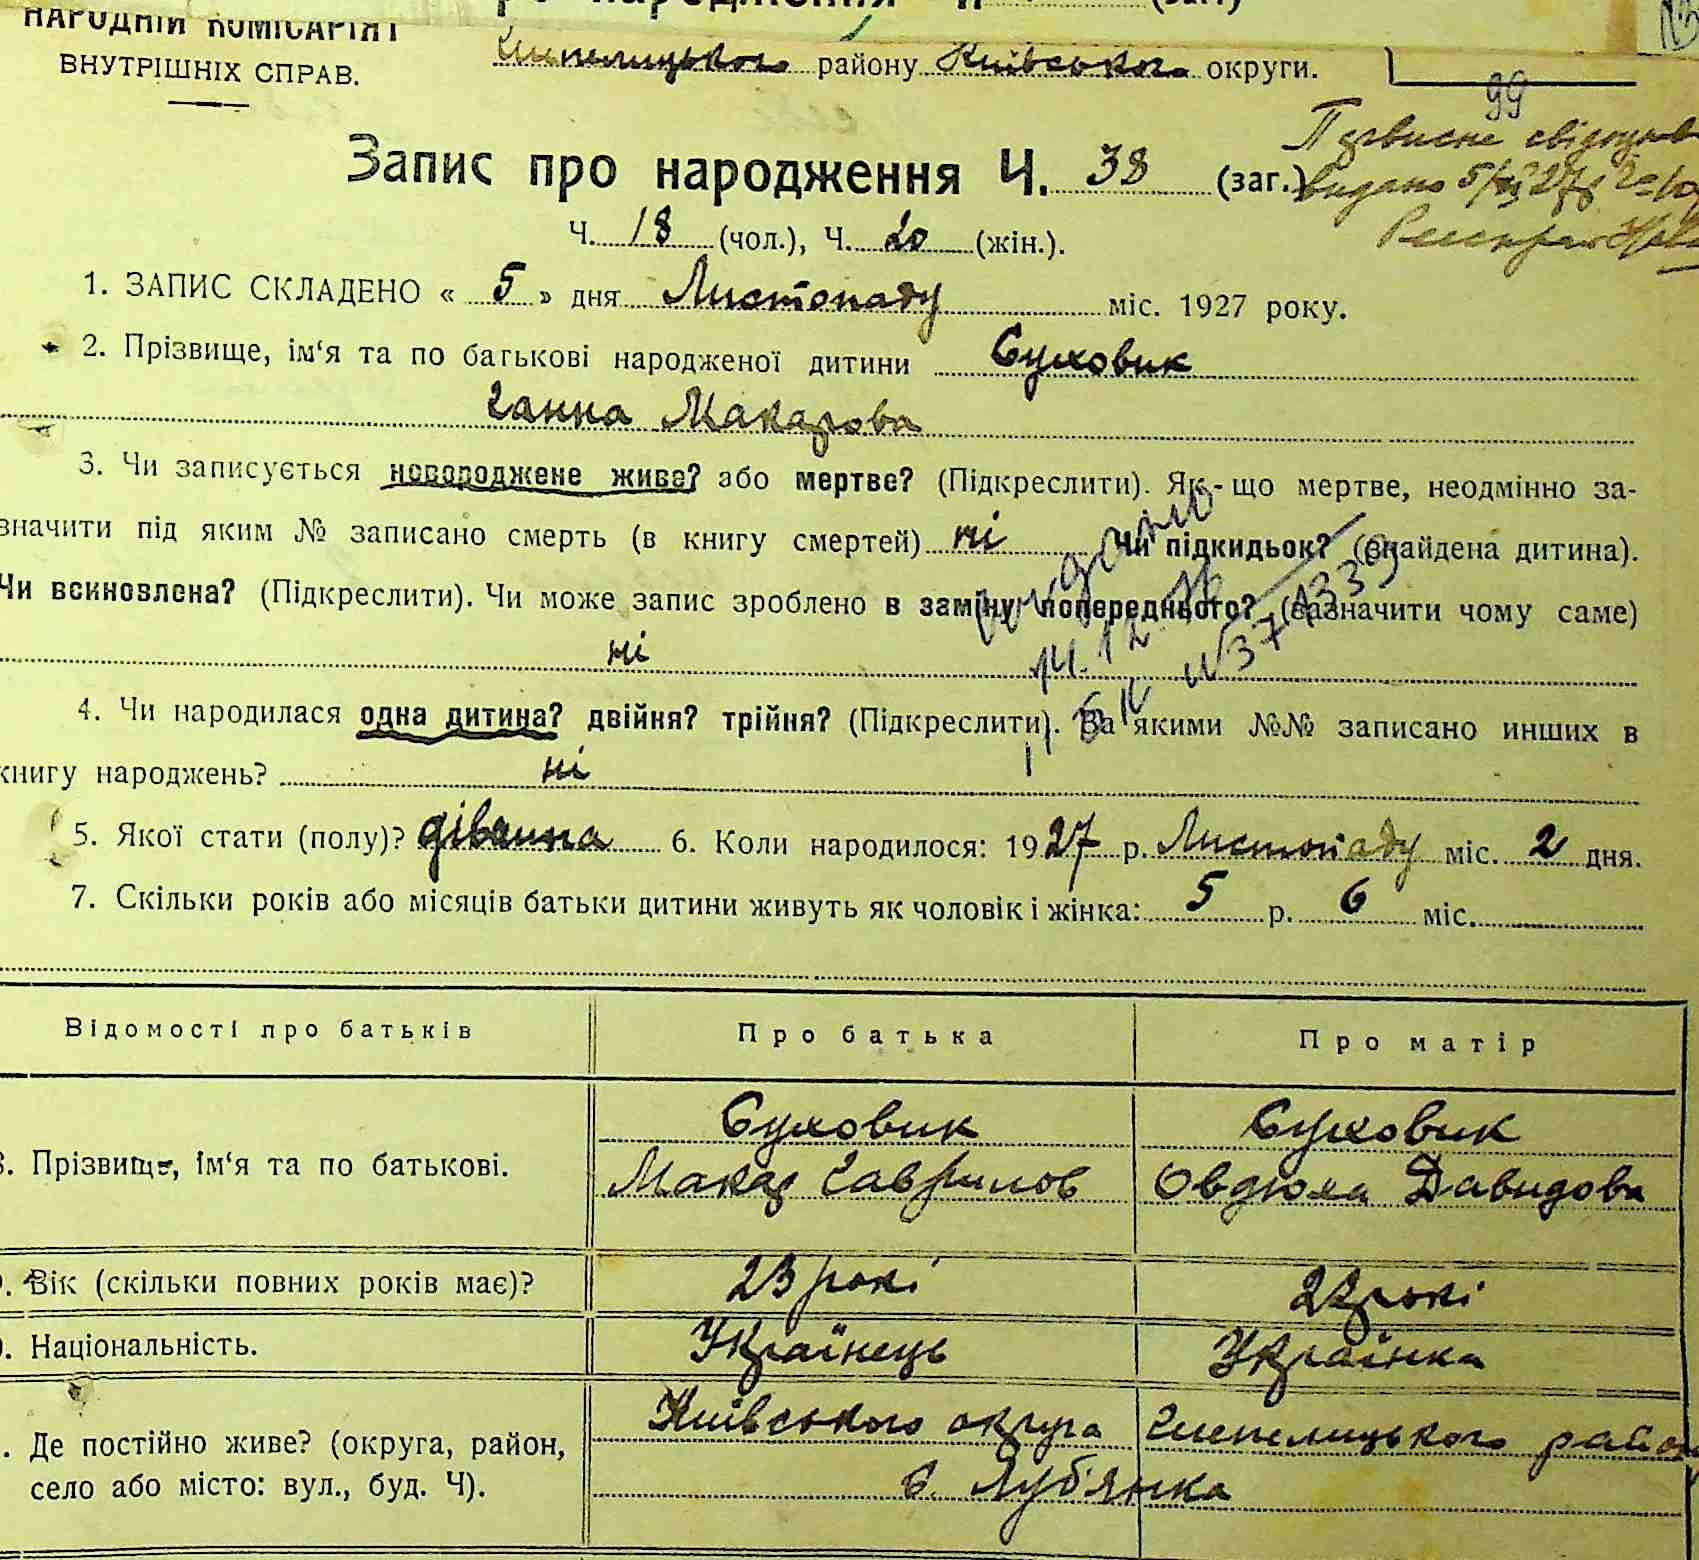 НАРОДНІЙ КОМІСАРІЯТ
ВНУТРІШНІХ СПРАВ.
району Київського округи.
99
Запис про народження Ч. 38 (заг.)
видано 5/XI 27 р.
Ч. 18 (чол.), Ч. 20 (жін.).
1. ЗАПИС СКЛАДЕНО « 5 » дня Листопаду міс. 1927 року.
2. Прізвище, ім‘я та по батькові народженої дитини Суховик
Ганна Макарова
3. Чи записується новороджене живе? або мертве? (Підкреслити). Як-що мертве, неодмінно за-
значити під яким № записано смерть (в книгу смертей) ні Чи підкидьок? (знайдена дитина).
Чи всиновлена? (Підкреслити). Чи може запис зроблено в заміну попереднього? (зазначити чому саме)
ні
4. Чи народилася одна дитина? двійня? трійня? (Підкреслити). За якими №№ записано инших в
книгу народжень? ні
5. Якої стати (полу)? дівчина 6. Коли народилося: 1927 р. Листопаду міс. 2 дня.
7. Скільки років або місяців батьки дитини живуть як чоловік і жінка: 5 р. 6 міс.
Відомості про батьків Про батька Про матір
Суховик Суховик
8. Прізвище, ім‘я та по батькові. Макар Гаврилов Овдюха Давидова
9. Вік (скільки повних років має)? 23 рокі 22 рокі
Національність. Українець Українка
Київського округа Шепелицького район
Де постійно живе? (округа, район,
село або місто: вул., буд. Ч). с. Луб'янка